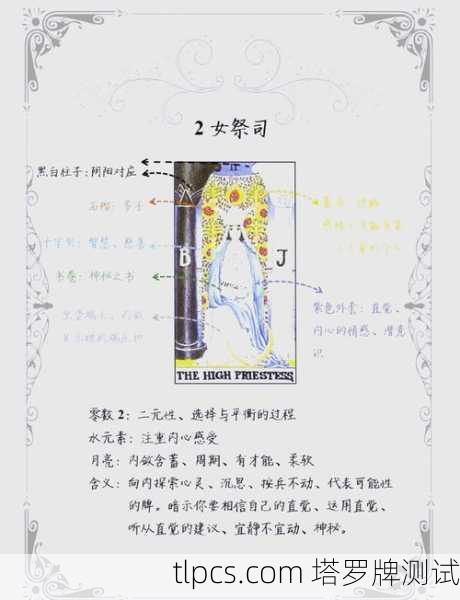 2 女祭司
黑白柱子:阴阳对应
石榴:多子
十字架:智慧、慈善
书卷:神秘之书
紫色外套:直觉、
内心的情感、潜意
识
II
B
J
THE HIGH PRIESTESS
零数2:二元性、选择与平衡的过程
水元素:注重内心感受
月亮:内敛含蓄、周期、有才能、柔软
含义:向内探索心灵、沉思、按兵不动、代表可能性
的牌。暗示你要相信自己的直觉、运用直觉、
听从直觉的建议、宜静不宜动、神秘。
tlpcs.com 塔罗牌测试